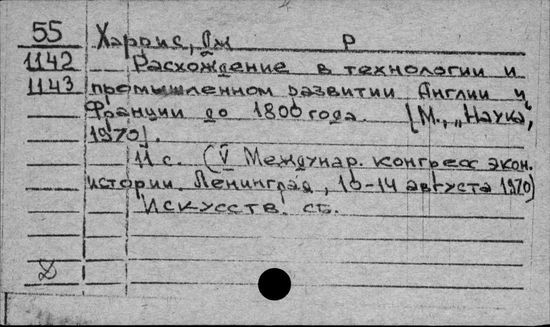 55 Харрис, Дж Р
1142 Расхождение в технологии и
1143 промышленном развитии Англии и
Франции до 1800 года. [М., „Наука",
1970].
11 с. (V Междунар. конгресс экон.
истории. Ленинград, 10-14 августа 1970)
Искусств. сб.